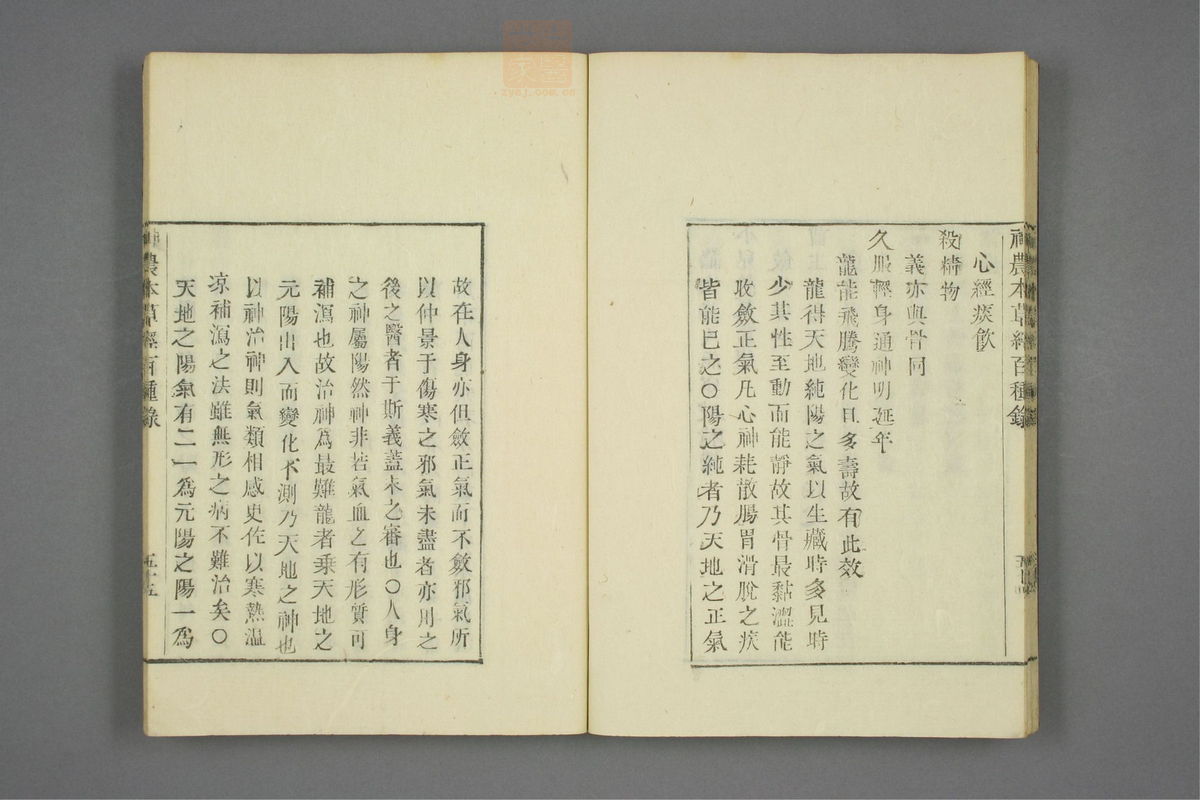 神農本草經百種錄
五十四
心經痰飲
殺精物
義亦與骨同
久服輕身通神明延年
龍能飛騰變化且多壽故有此效
龍得天地純陽之氣以生藏時多見時
少其性至動而能靜故其骨最黏澀能
收斂正氣凡心神耗散腸胃滑脫之疾
皆能已之○陽之純者乃天地之正氣
故在人身亦但斂正氣而不斂邪氣所
以仲景于傷寒之邪氣未盡者亦用之
後之醫者于斯義蓋未之審也○人身
之神屬陽然神非若氣血之有形質可
補瀉也故治神爲最難龍者乗天地之
元陽出入而變化不測乃天地之神也
以神治神則氣類相感更佐以寒熱溫
凉補瀉之法雖無形之病不難治矣○
天地之陽氣有二一爲元陽之陽一爲
神農本草經百種錄
五十五
zycj.com.cn